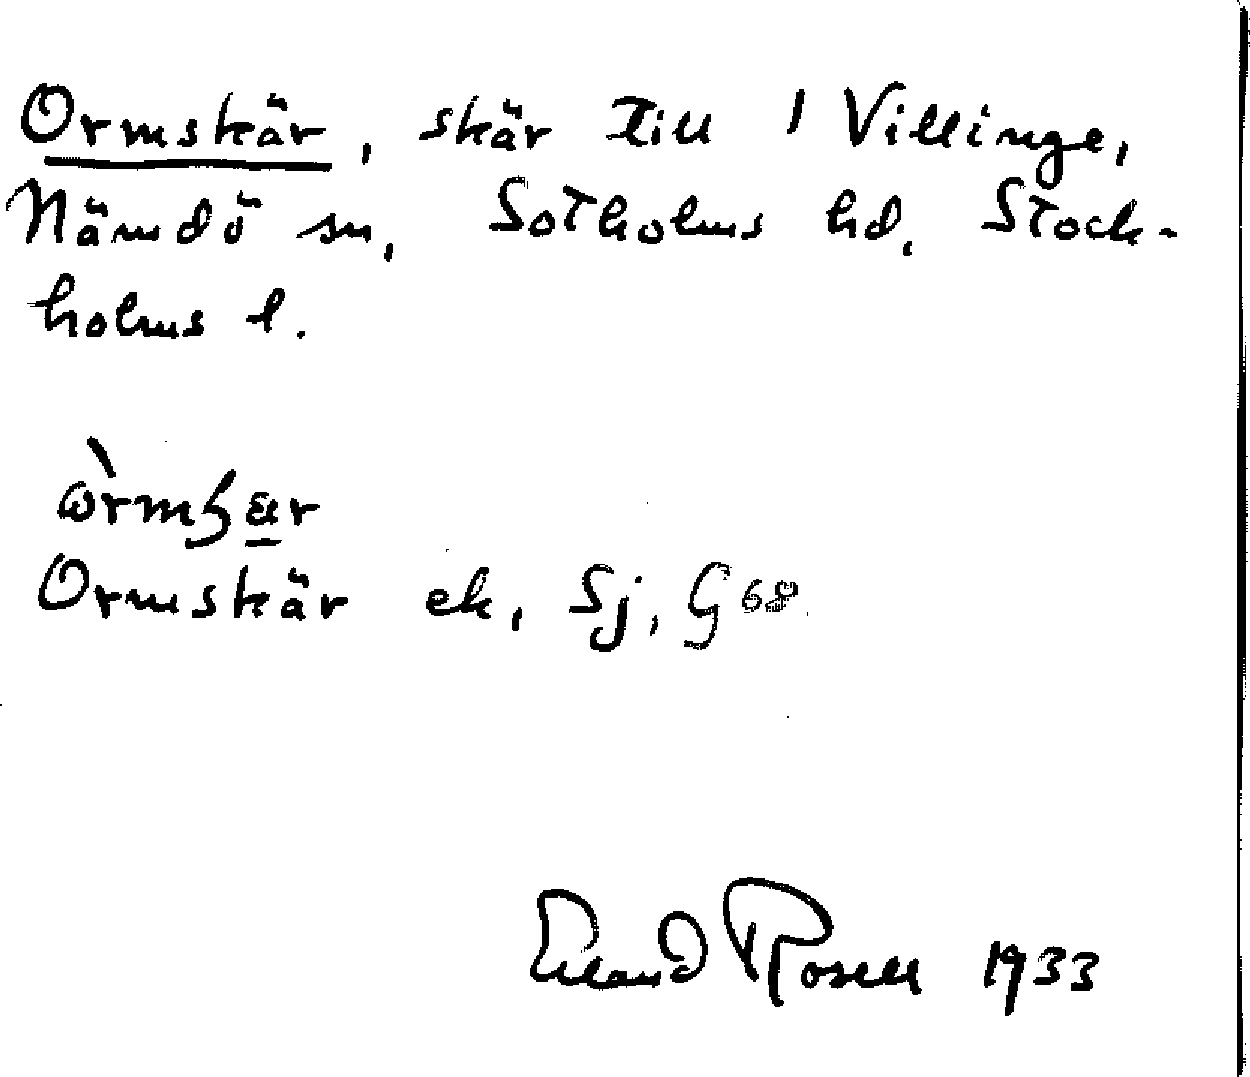 Ormskär, skär till 1 Villinge,
Nämdö sn, Sotholms hd, Stock-
holms l.
Ormskär ek, Sj, G 68
Erland Rosell 1933